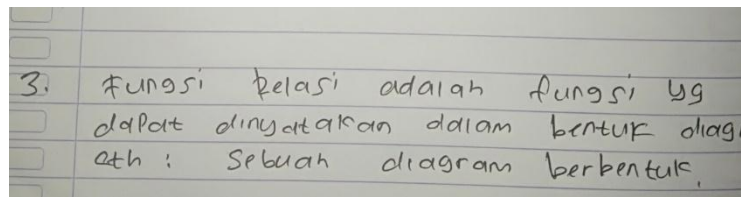 3. Fungsi Relasi adalah fungsi yg
dapat dinyatakan dalam bentuk diag
cth : Sebuah diagram berbentuk